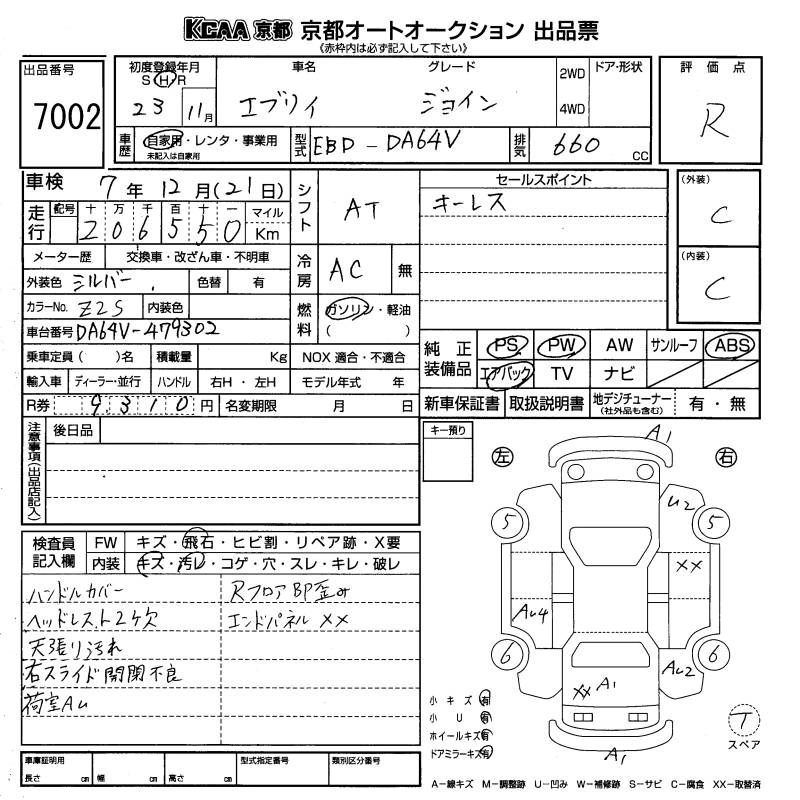 KCAA 京都 京都オートオークション 出品票
《赤枠内は必ず記入して下さい》
出品番号
7002
初度登録年月
S H R
23 11月
車名
エブリイ
グレード
ジョイン
2WD
4WD
ドア・形状
評価点
R
車歴 自家用・レンタ・事業用
未記入は自家用
型式 EBD-DA64V
排気 660 CC
車検 7年12月(21日)
走行 記号 十 万 千 百 十 一 マイル
206550 Km
メーター歴 交換車・改ざん車・不明車
外装色 シルバー 色替 有
カラーNo. Z2S 内装色
車台番号 DA64V-479302
乗車定員( )名 積載量 Kg
輸入車 ディーラー・並行 ハンドル 右H・左H モデル年式 年
R券 9310円 名変期限 月 日
シフト AT
冷房 AC 無
燃料 ガソリン・軽油
( )
NOX 適合・不適合
セールスポイント
キーレス
(外装)
C
(内装)
C
純正装備品 PS PW AW サンルーフ ABS
エアバック TV ナビ
新車保証書 取扱説明書 地デジチューナー(社外品も含む) 有・無
注意事項(出品店記入)
後日品
キー預り
検査員記入欄
FW キズ・飛石・ヒビ割・リペア跡・X要
内装 キズ・汚レ・コゲ・穴・スレ・キレ・破レ
ハンドルカバー
ヘッドレスト2ケ欠
天張り汚れ
右スライド開閉不良
荷室AU
Rフロア BP歪み
エンドパネル XX
左
右
A1
U2
5
5
XX
AU4
6
6
AU2
XX A1
A1
小キズ 有
小U 有
ホイールキズ 有
ドアミラーキズ 有
T
スペア
車庫証明用
長さ cm 幅 cm 高さ cm
型式指定番号
類別区分番号
A-線キズ M-調整跡 U-凹み W-補修跡 S-サビ C-腐食 XX-取替済